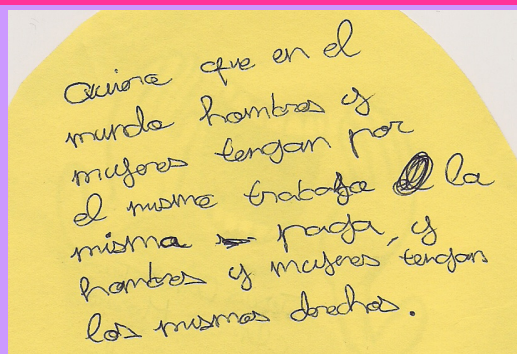 Quiero que en el
mundo hombres y
mujeres tengan por
el mismo trabajo la
misma paga, y
hombres y mujeres tengan
los mismos derechos.